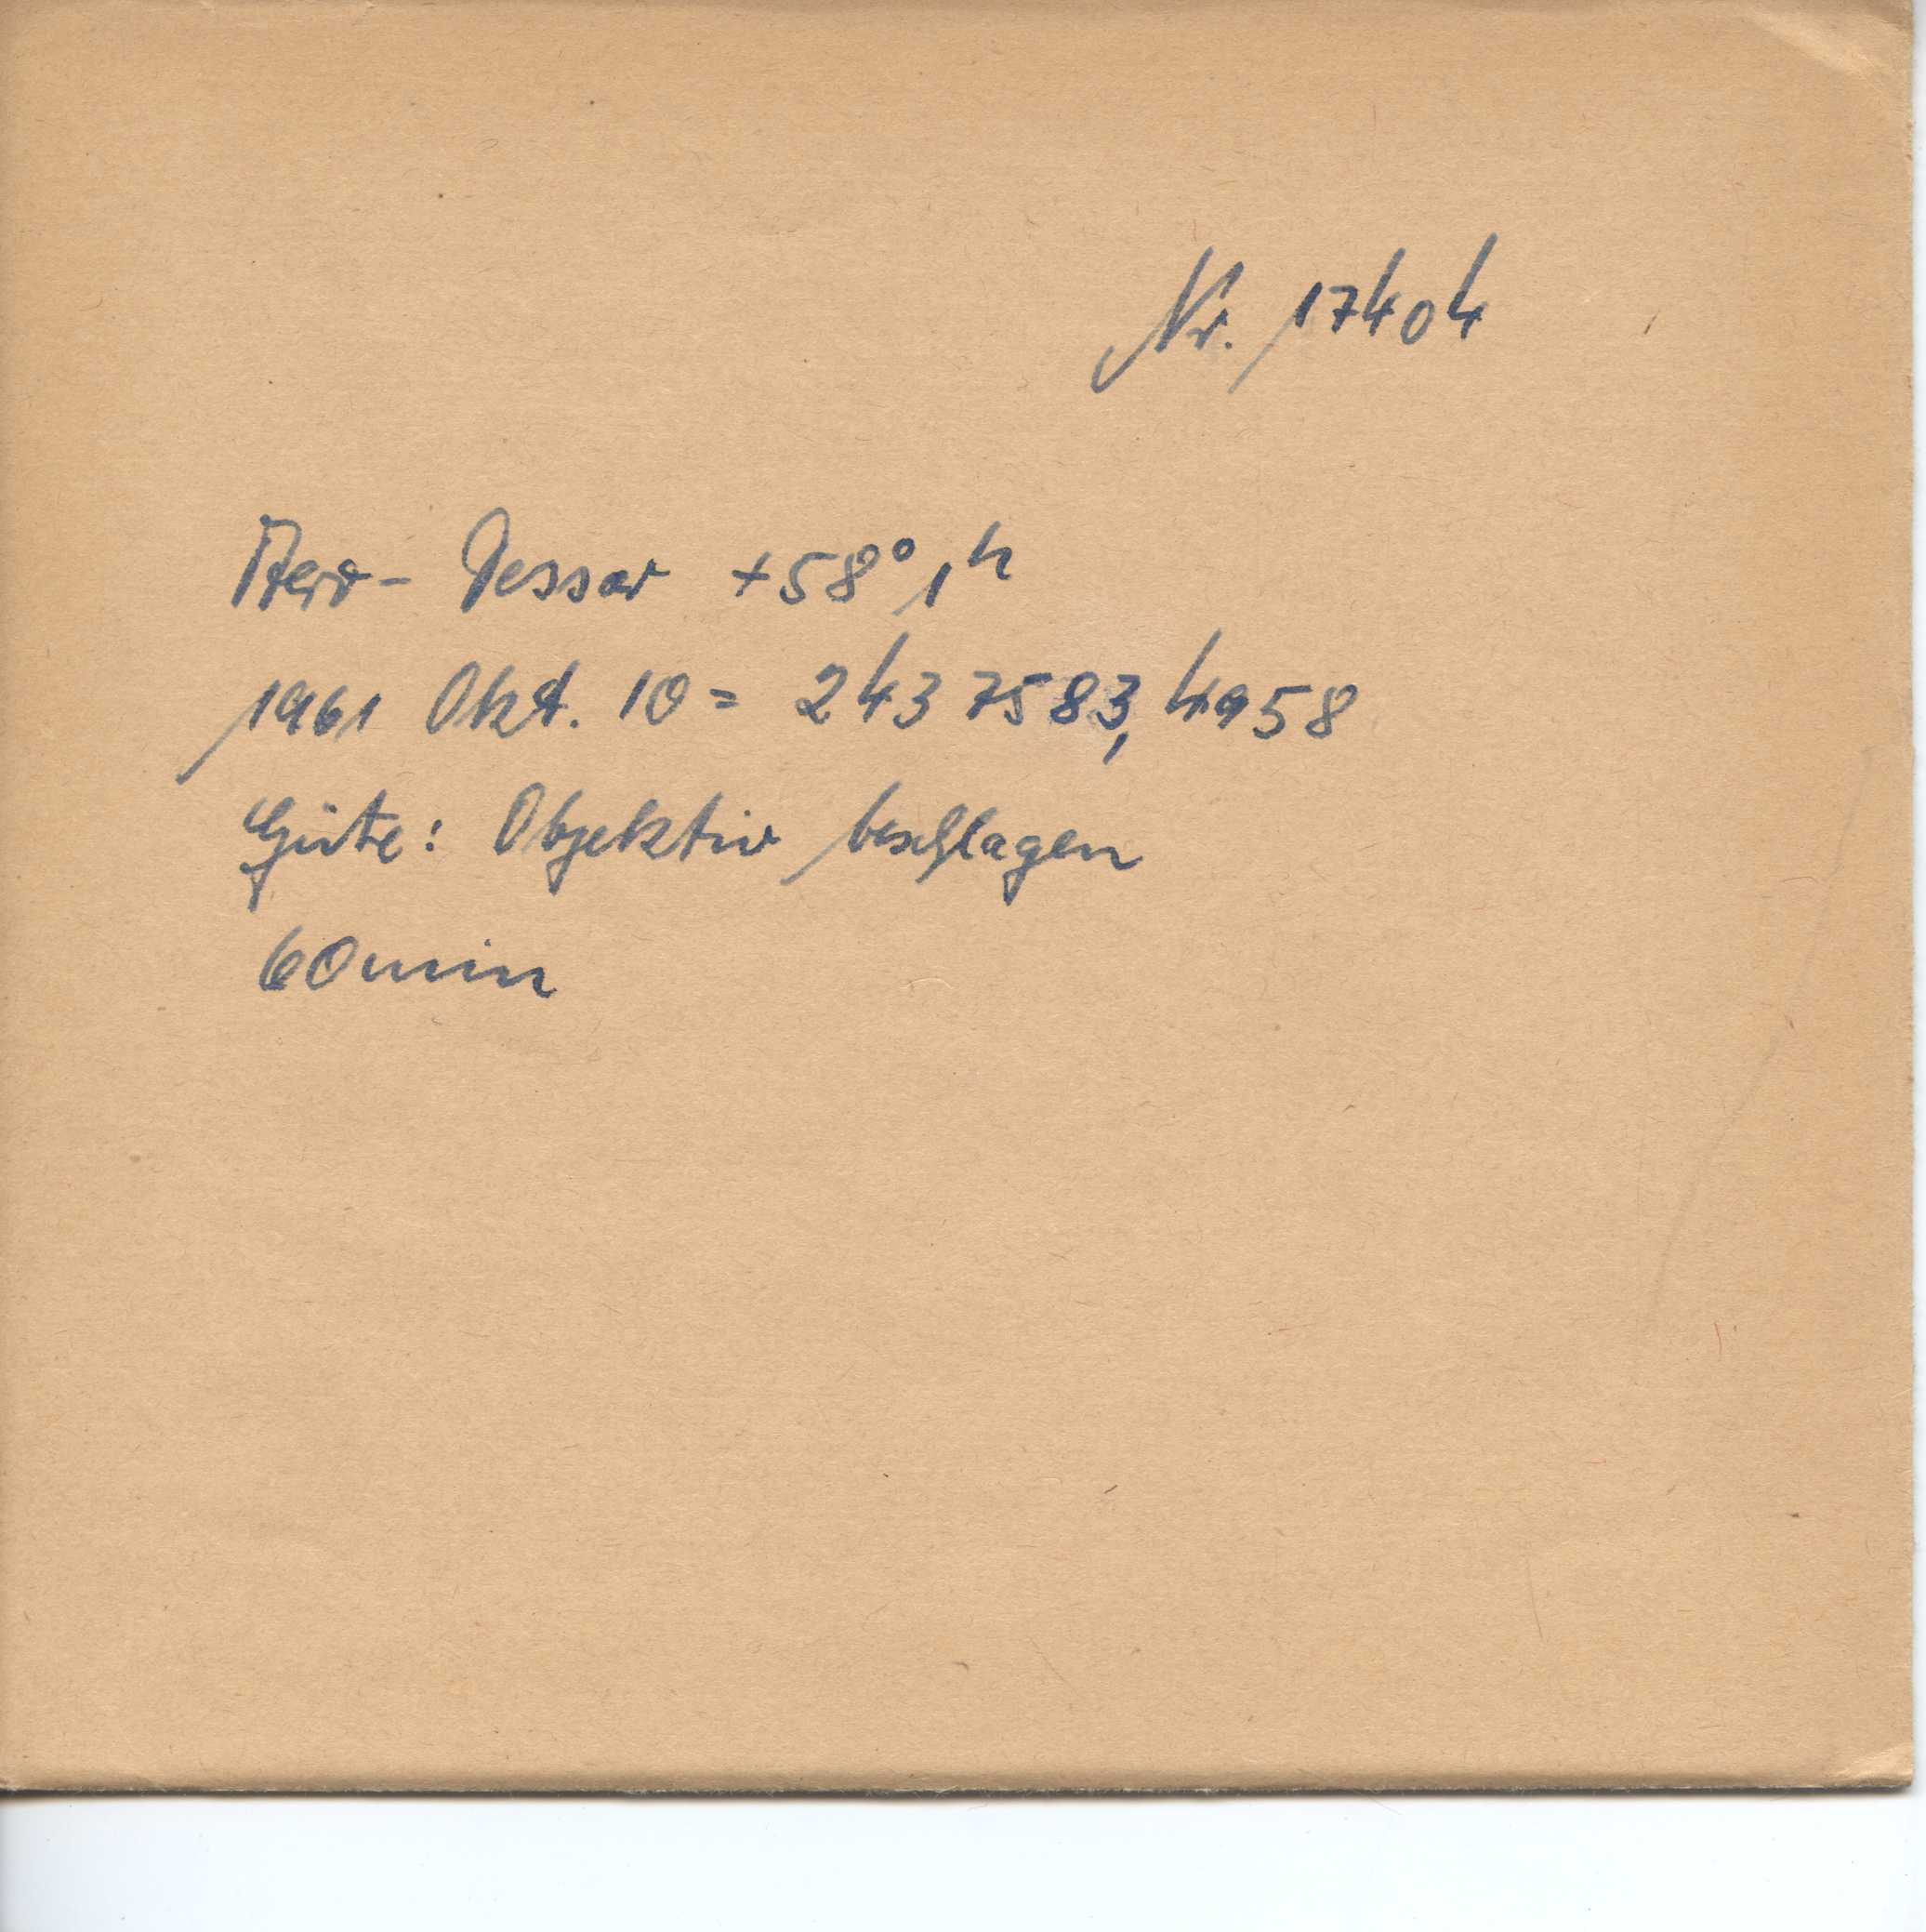 Nr. 17404
Aero-Tessar +58° 1h
1961 Okt. 10 = 243 7583,4958
Güte: Objektiv beschlagen
60 min